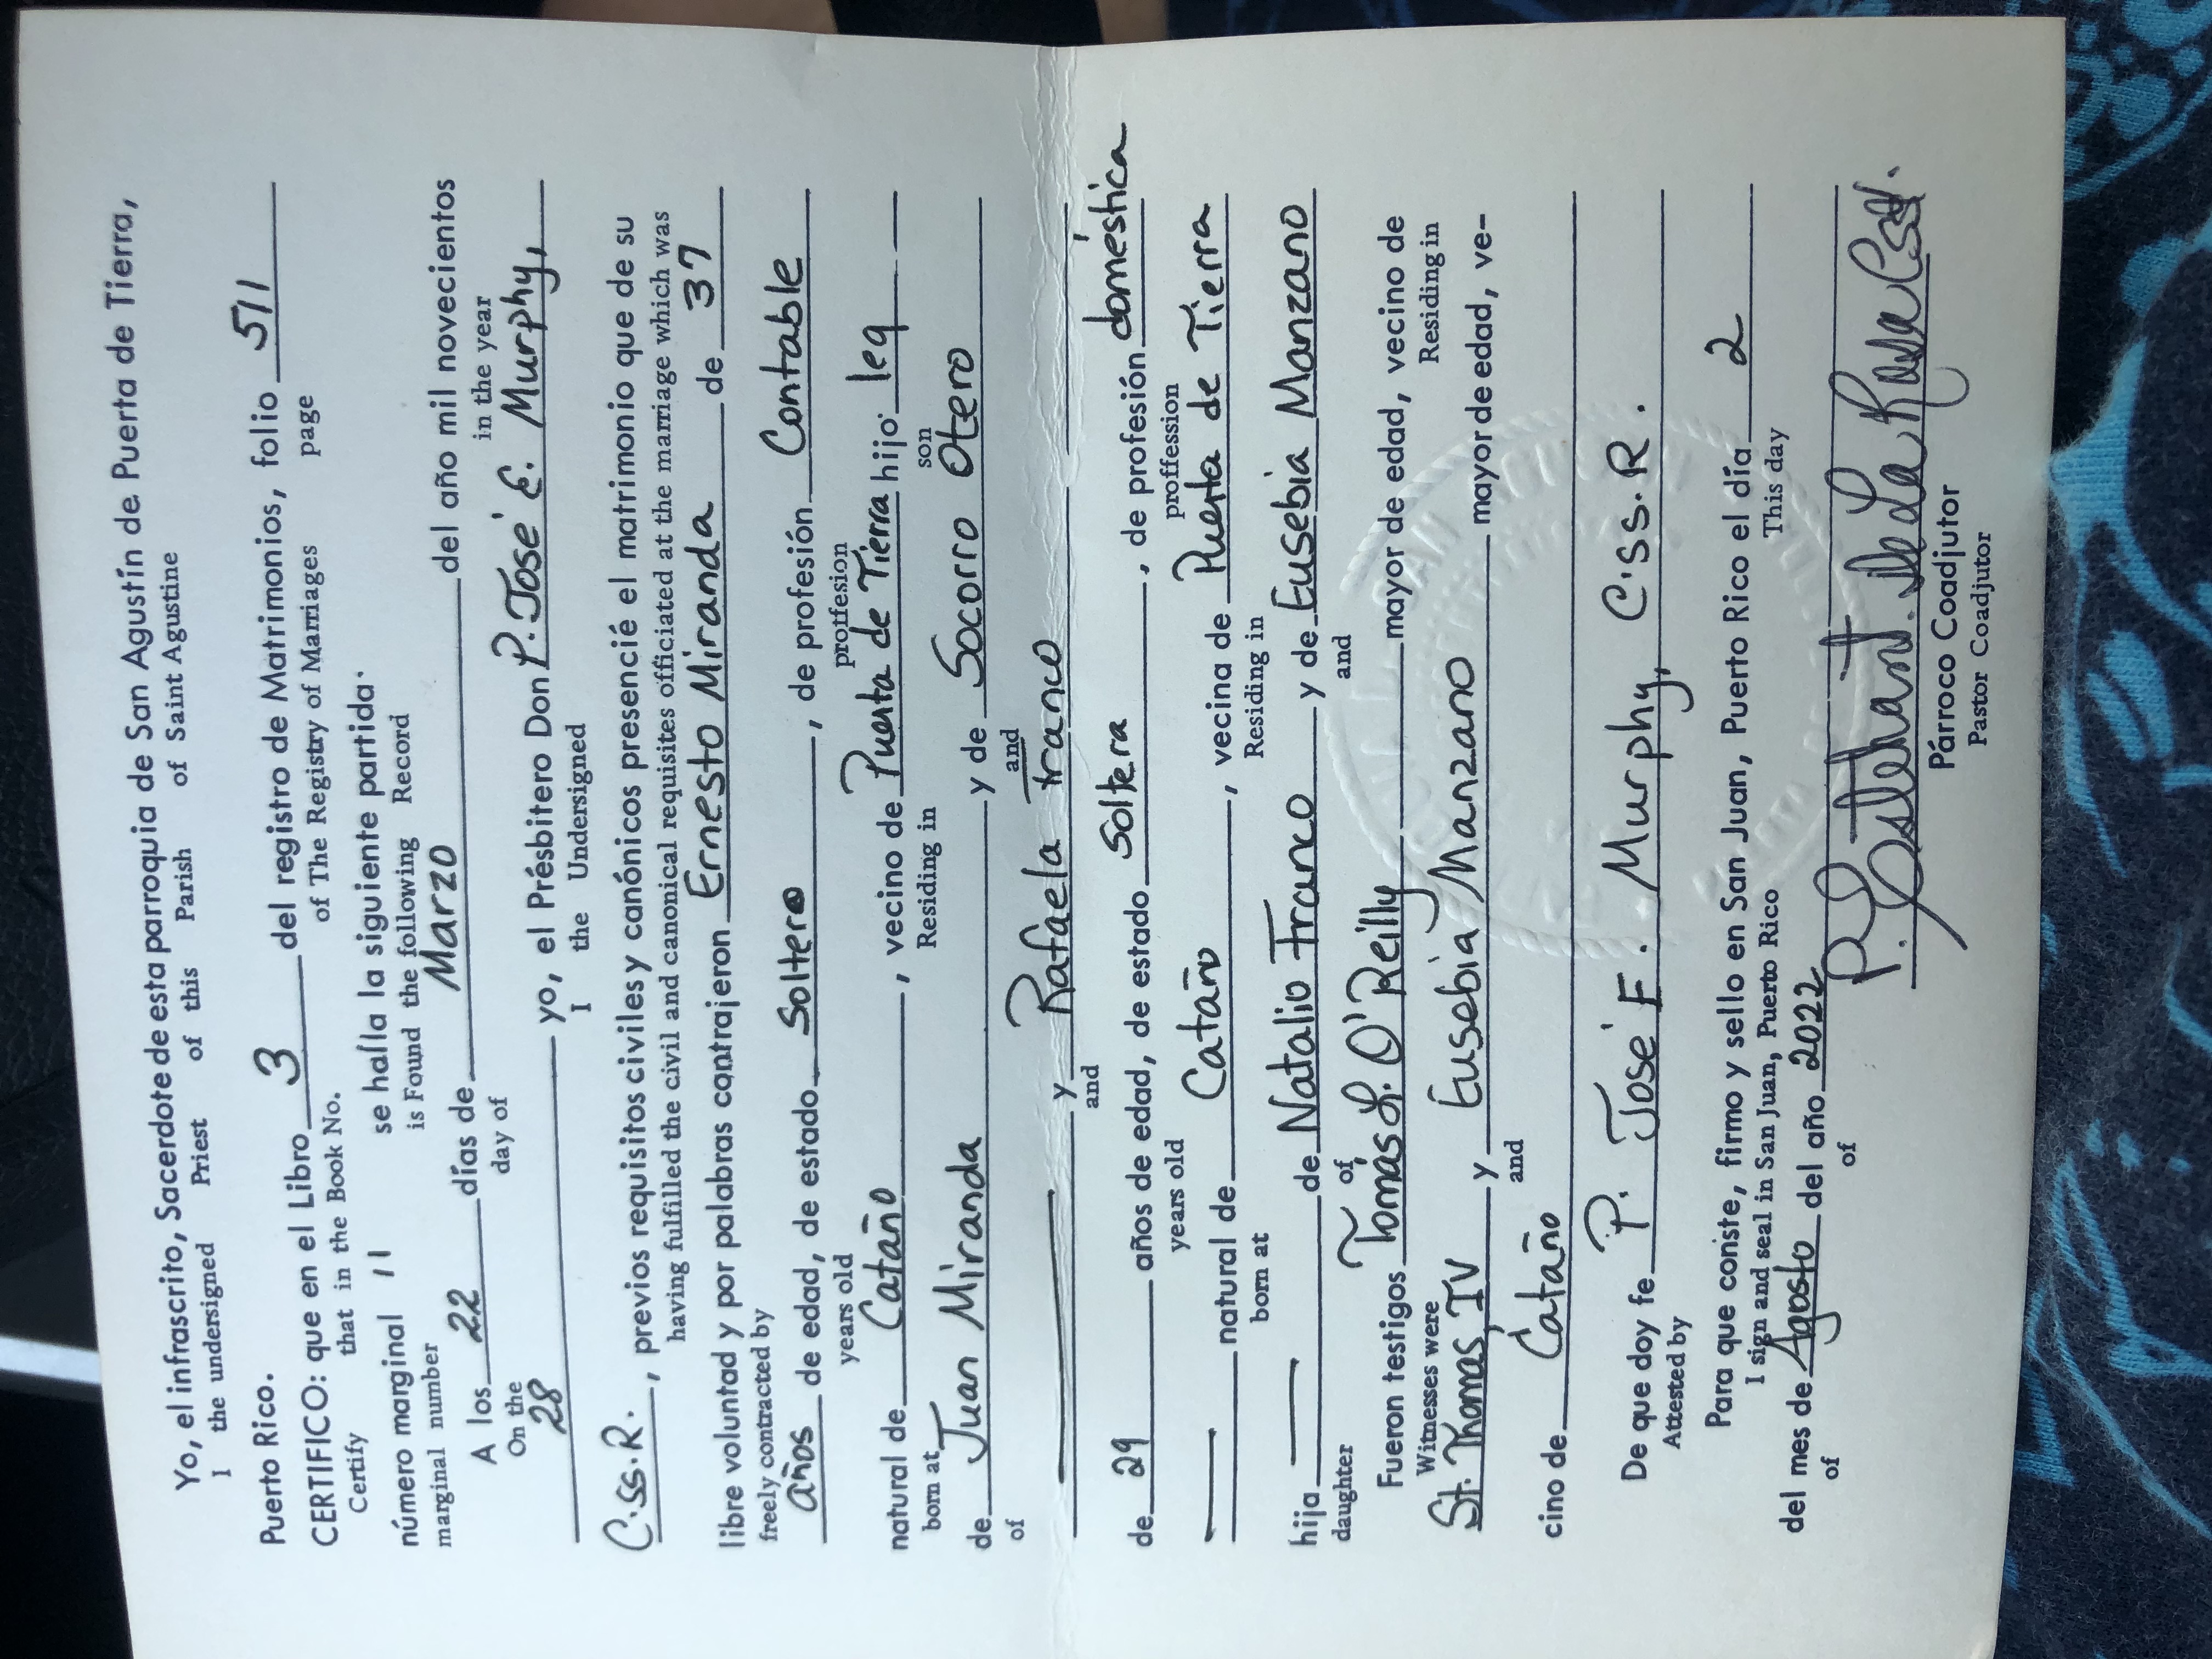 Yo, el infrascrito, Sacerdote de esta parroquia de San Agustín de Puerta de Tierra,
I the undersigned Priest of this Parish of Saint Agustine
Puerto Rico.
CERTIFICO: que en el Libro 3 del registro de Matrimonios, folio 511
Certify that in the Book No. of The Registry of Marriages page
número marginal 11 se halla la siguiente partida.
marginal number is Found the following Record
A los 22 días de Marzo del año mil novecientos
On the day of in the year
28 yo, el Présbitero Don P. José E. Murphy,
I the Undersigned
C.ss.R., previos requisitos civiles y canónicos presencié el matrimonio que de su
having fulfilled the civil and canonical requisites officiated at the marriage which was
libre voluntad y por palabras contrajeron Ernesto Miranda de 37
freely contracted by
años de edad, de estado soltero, de profesión Contable
years old proffesion
natural de Cataño, vecino de Puerta de Tierra hijo leg
born at Residing in son
de Juan Miranda y de Socorro Otero
of and
y Rafaela Franco
and
de 29 años de edad, de estado soltera, de profesión doméstica
years old proffession
natural de Cataño, vecina de Puerta de Tierra
born at Residing in
hija de Natalio Franco y de Eusebia Manzano
daughter of and
Fueron testigos Tomás L. O'Reilly mayor de edad, vecino de
Witnesses were Residing in
St. Thomas, IV y Eusebia Manzano mayor de edad, ve-
and
cino de Cataño
De que doy fe P. José E. Murphy, C.ss.R.
Attested by
Para que conste, firmo y sello en San Juan, Puerto Rico el día 2
I sign and seal in San Juan, Puerto Rico This day
del mes de Agosto del año 2022
of of
P. De La Rosa
Párroco Coadjutor
Pastor Coadjutor